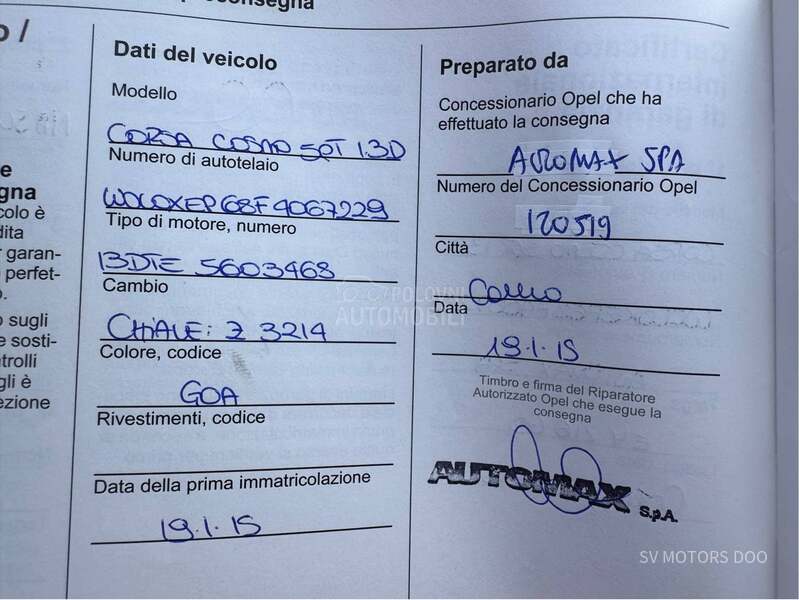 consegna
o /
e
gna
colo è
dita
r garan-
perfet-
o.
o sugli
e sosti-
trolli
gli è
ezione
Dati del veicolo
Modello
CORSA COSMO 5PT 1.3D
Numero di autotelaio
W0L0XEP68F4067229
Tipo di motore, numero
13DTE 5603468
Cambio
CHIAVE: Z 3214
Colore, codice
GOA
Rivestimenti, codice
Data della prima immatricolazione
19.1.15
Preparato da
Concessionario Opel che ha
effettuato la consegna
AUTOMAX SPA
Numero del Concessionario Opel
120519
Città
Data
19.1.15
Timbro e firma del Riparatore
Autorizzato Opel che esegue la
consegna
AUTOMAX S.p.A.
POLOVNI
AUTOMOBILI
SV MOTORS DOO